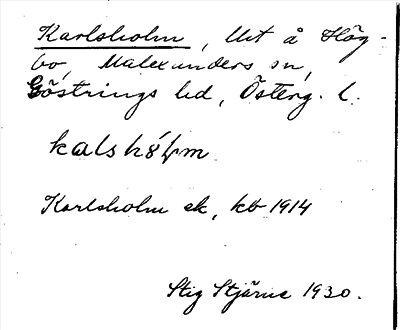 Karlsholm, Urt å Hög-
bo, Malexanders sn,
Göstrings hd, Österg. l.
Karlsholm ek, kb 1914
Stig Stjärne 1930.